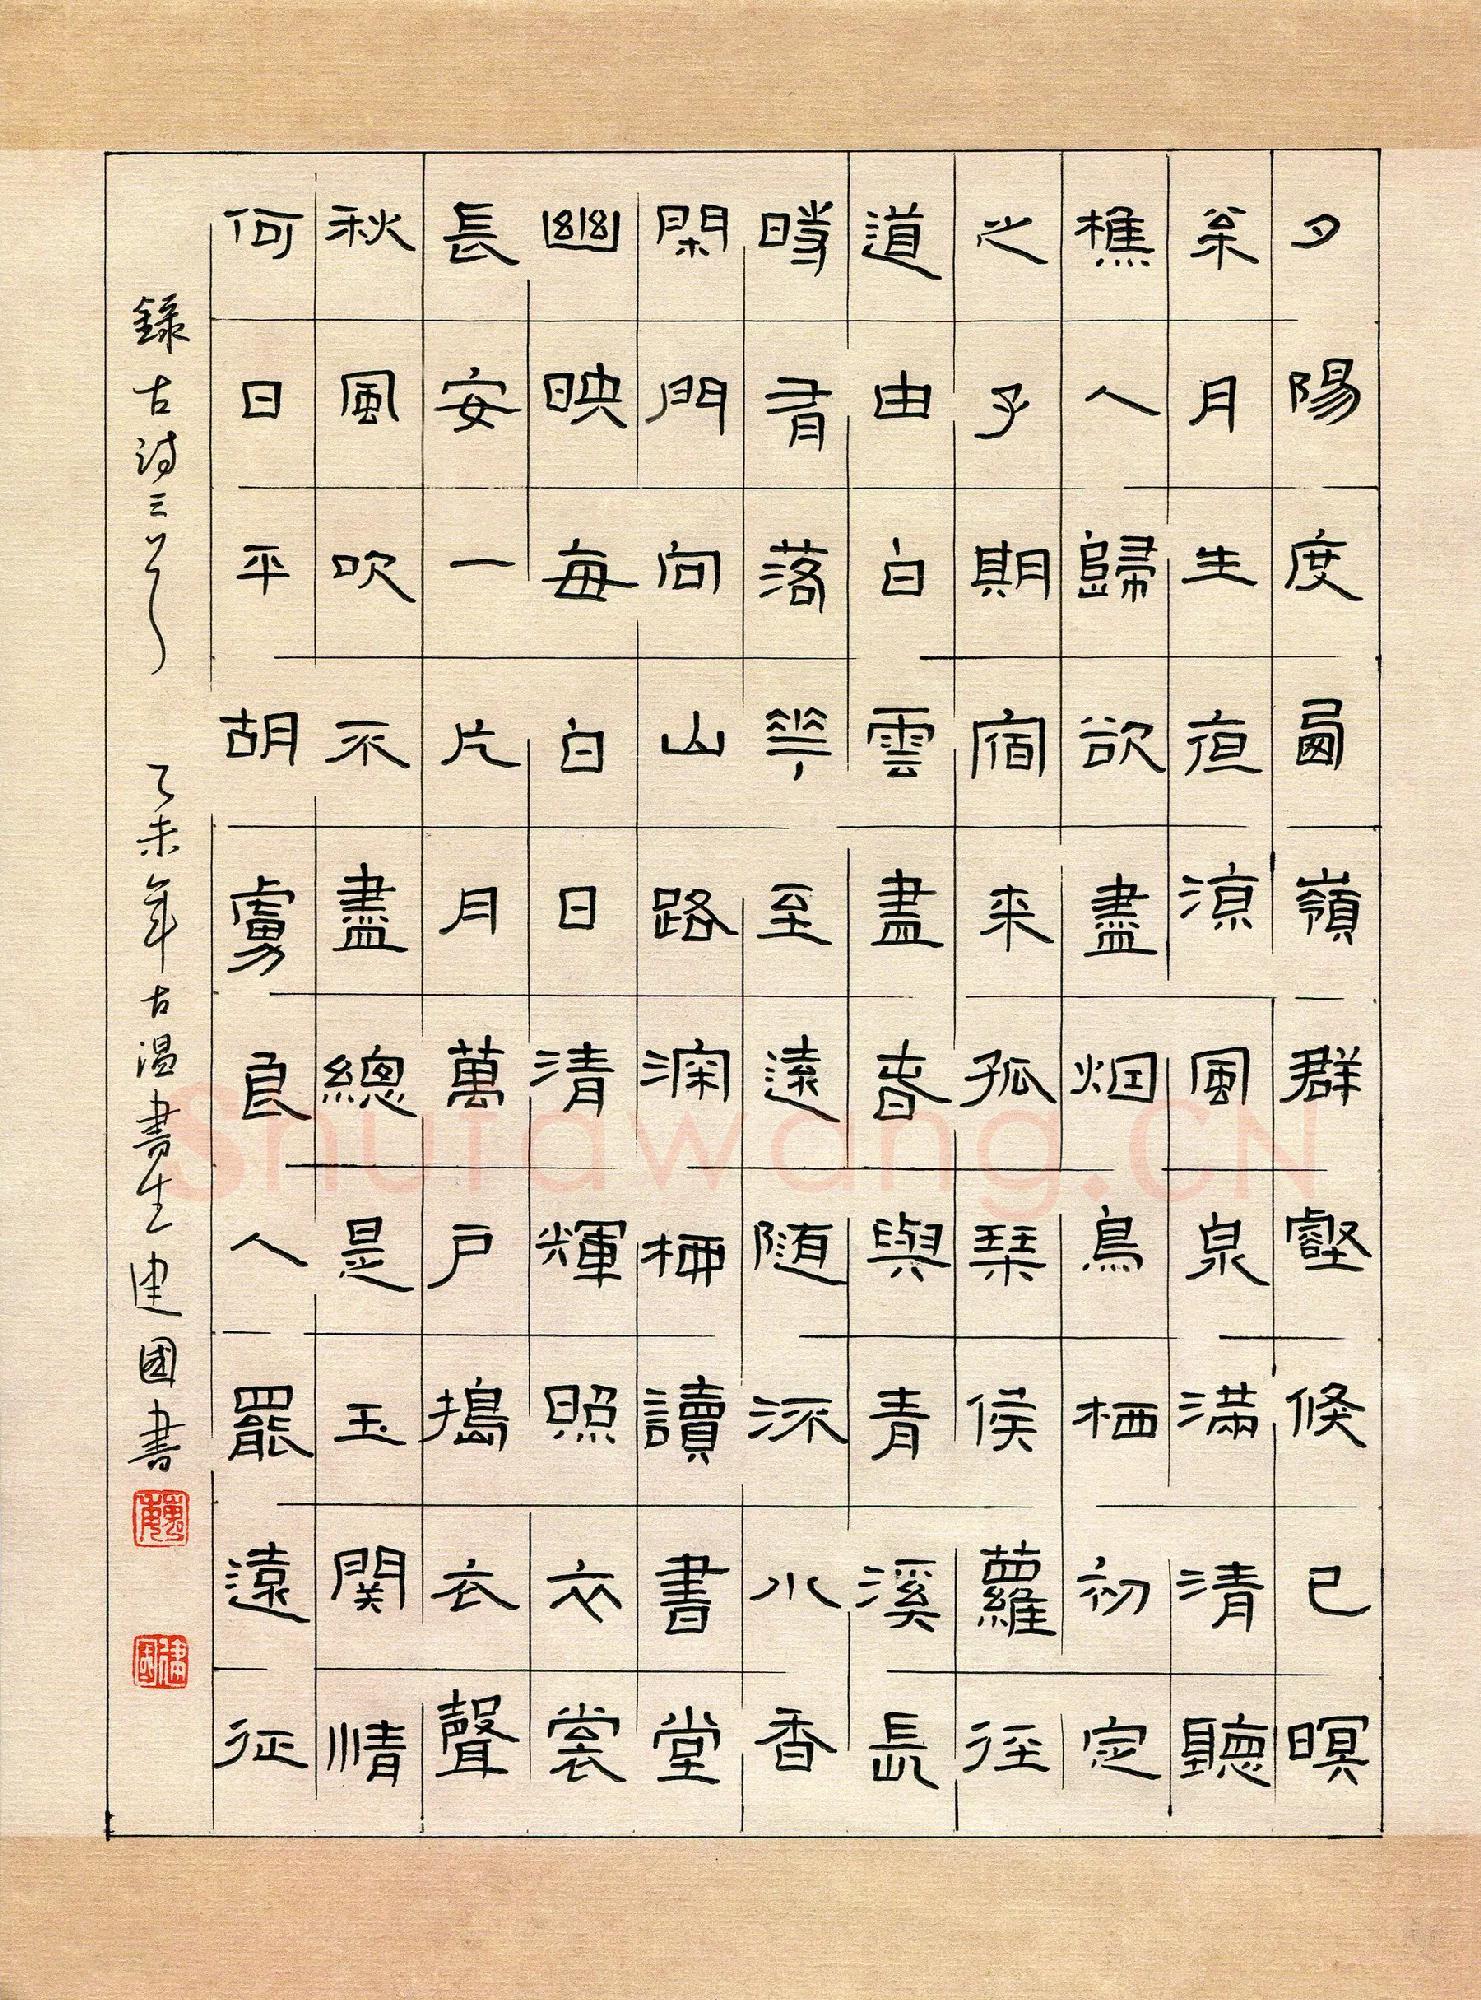 夕陽度西嶺群壑倏已暝
松月生夜涼風泉滿清聽
樵人歸欲盡烟鳥栖初定
之子期宿来孤琴候蘿徑
道由白雲盡春與青溪長
時有落花至遠隨流水香
閑門向山路深柳讀書堂
幽映每白日清輝照衣裳
長安一片月萬戶搗衣聲
秋風吹不盡總是玉關情
何日平胡虜良人罷遠征
錄古詩三首 乙未年古温書生建國書
Shufawang.CN